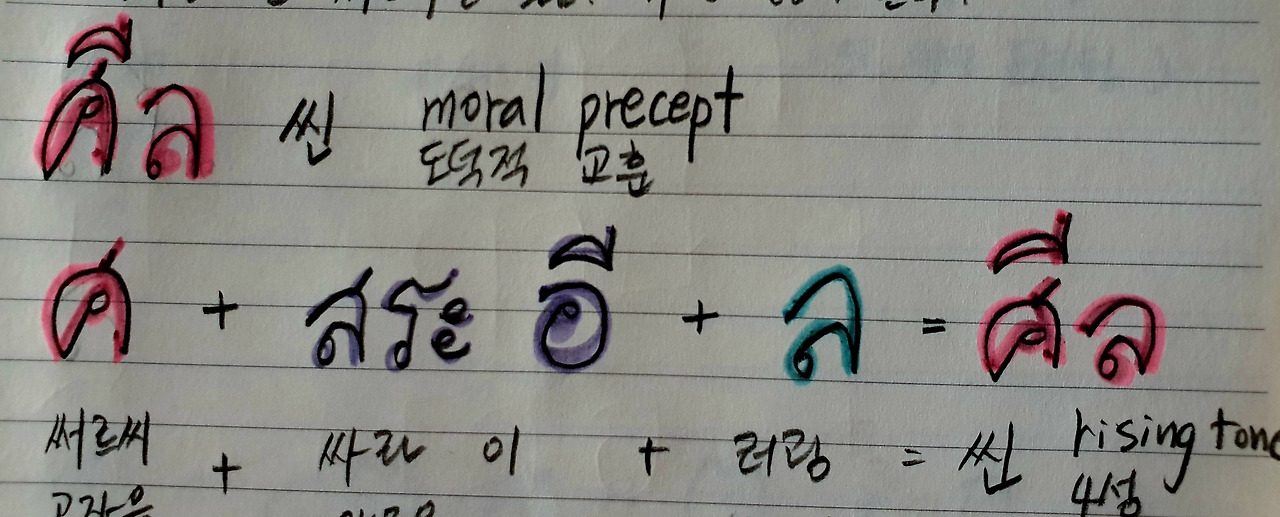 ศีล 씬 moral precept
도덕적 교훈
ศ + สระ อี + ล = ศีล
써르씨 + 싸라 이 + 러링 = 씬 rising tone
고자음 4성